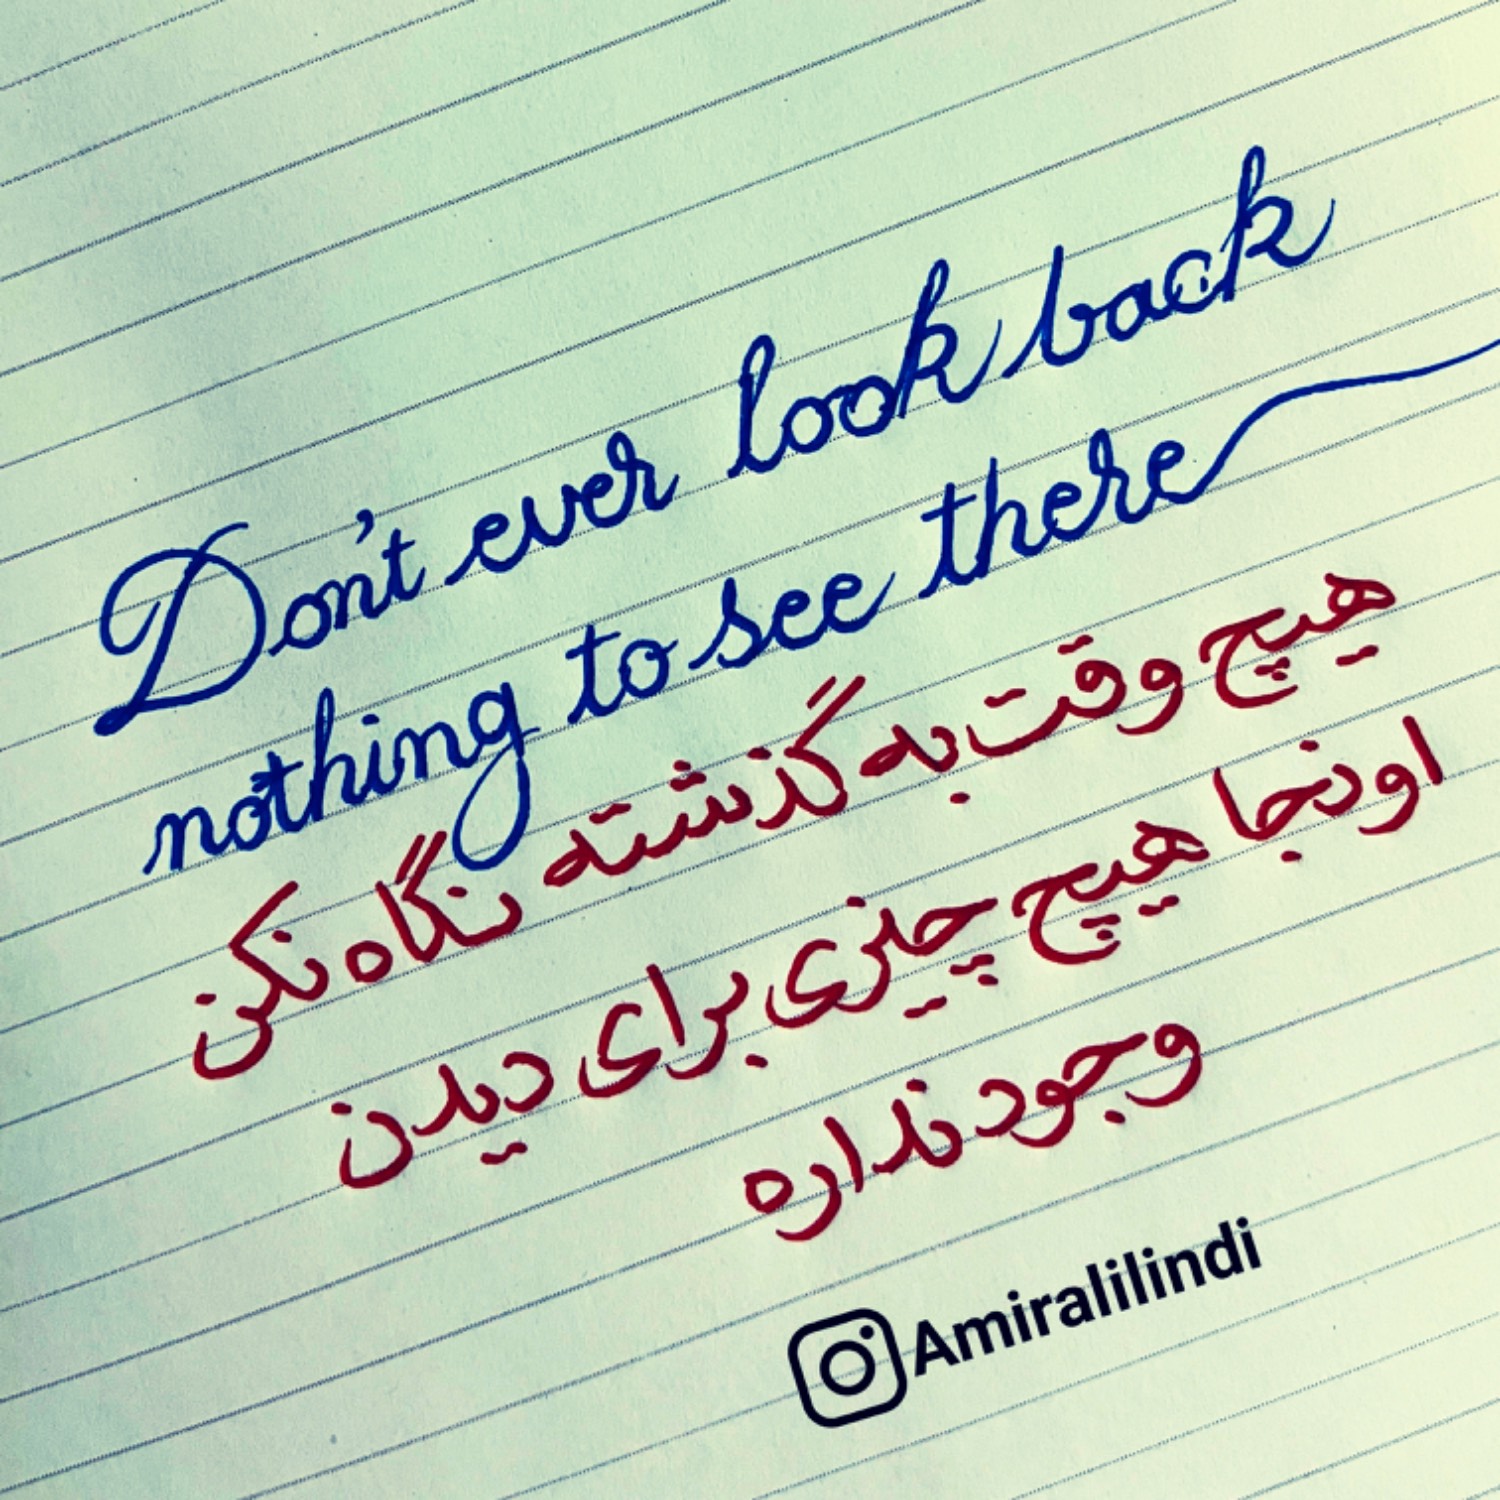 Don't ever look back
nothing to see there
هیچ وقت به گذشته نگاه نکن
اونجا هیچ چیزی برای دیدن
وجود نداره
Amiralilindi